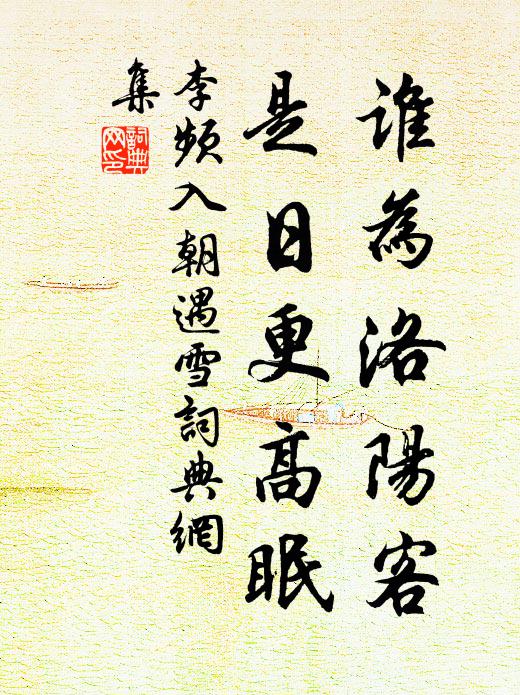 誰為洛陽客
是日更高眠
李頻入朝遇雪詞典網
集
詞典
网印